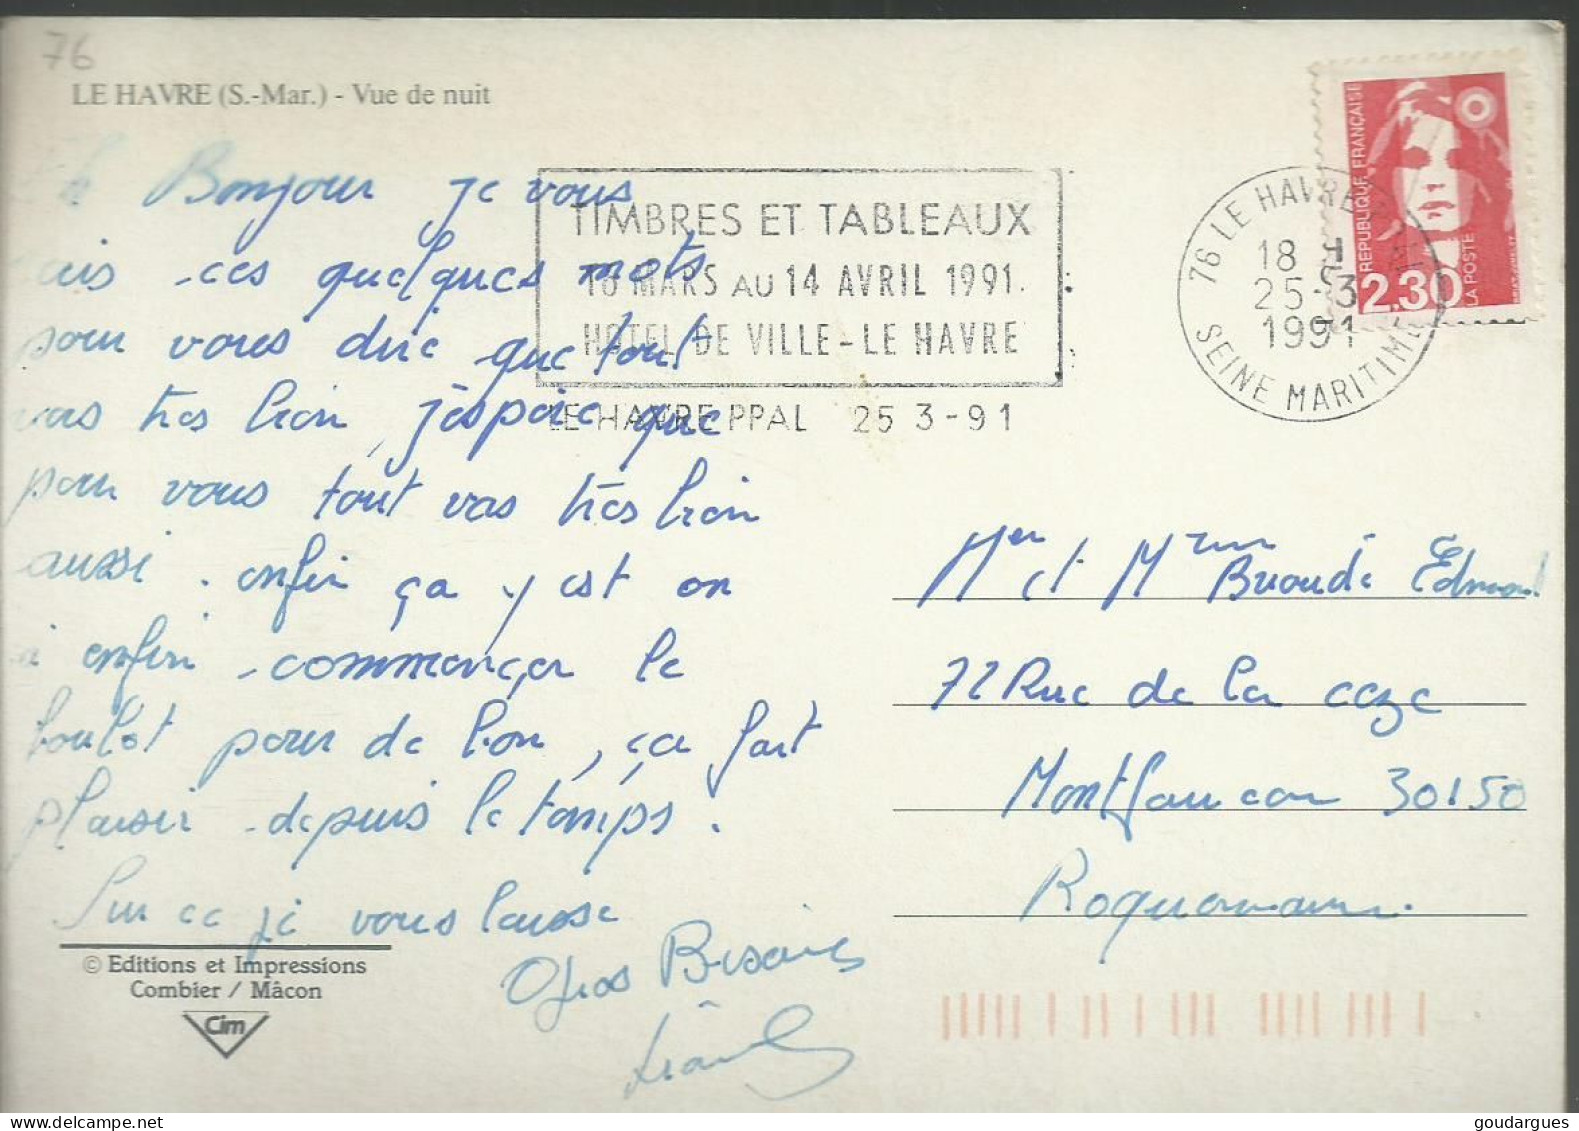 76
LE HAVRE (S.-Mar.) - Vue de nuit
Bonjour je vous
ais ces quelques mots
pour vous dire que tout
vas très bien, j'éspaire que
pour vous tout vas très bien
aussi. enfin ça y est on
à enfin commençer le
boulot pour de bon, ça fait
plaisir depuis le temps.
Sur ce je vous laisse
Gros Bisous
© Editions et Impressions
Combier / Mâcon
Cim
TIMBRES ET TABLEAUX
16 MARS AU 14 AVRIL 1991
HOTEL DE VILLE - LE HAVRE
LE HAVRE PPAL 25 3-91
76 LE HAVRE
18 H
25-3
1991
SEINE MARITIME
REPUBLIQUE FRANÇAISE
2,30
LA POSTE
Mer et Mme Edmond
72 Rue de la
Montfaucon 30150
Roquemaure.
goudargues